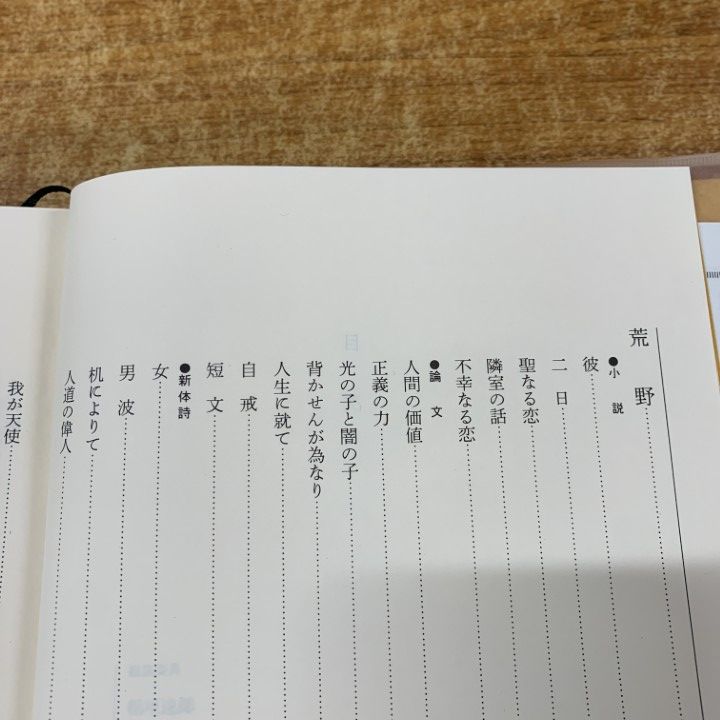 荒野
●小説
彼
二日
聖なる恋
隣室の話
不幸なる恋
●論文
人間の価値
正義の力
光の子と闇の子
背かせんが為なり
人生に就て
自戒
短文
●新体詩
女
男波
机によりて
人道の偉人
我が天使